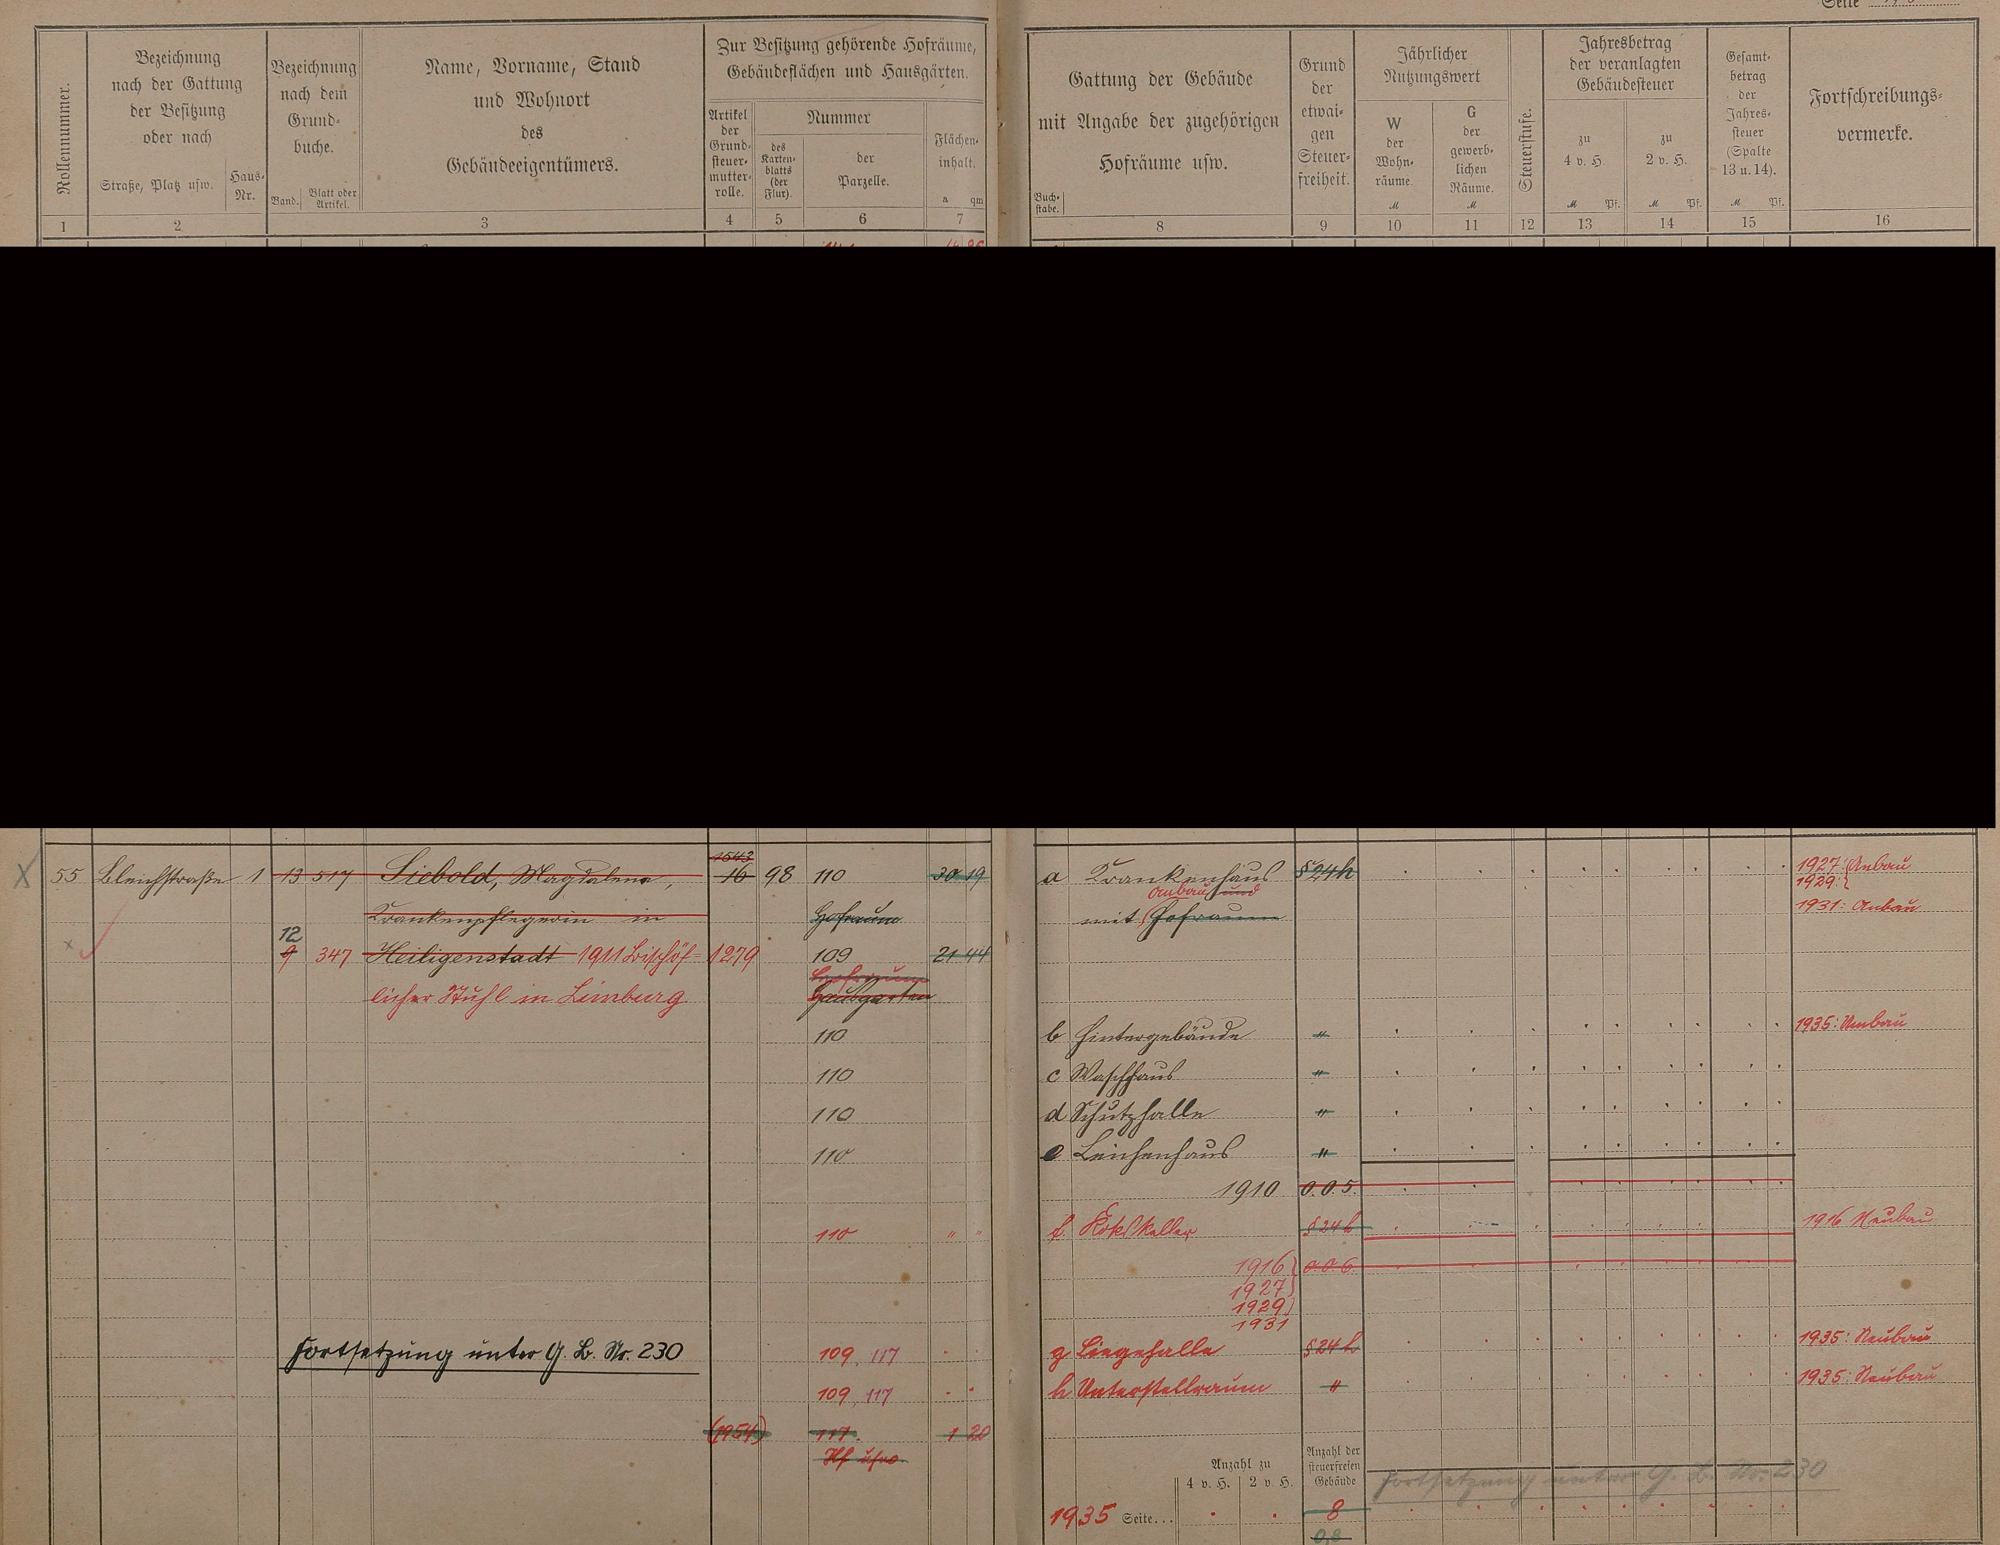 Seite
Rollennummer.
Bezeichnung
nach der Gattung
der Besitzung
oder nach
Straße, Platz usw.
Haus-
Nr.
Bezeichnung
nach dem
Grund-
buche.
Band.
Blatt oder
Artikel.
Name, Vorname, Stand
und Wohnort
des
Gebäudeeigentümers.
Zur Besitzung gehörende Hofräume,
Gebäudeflächen und Hausgärten.
Artikel
der
Grund-
steuer-
mutter-
rolle.
Nummer
des
Karten-
blatts
(der
Flur).
der
Parzelle.
Flächen-
inhalt.
a qm
1 2 3 4 5 6 7
Gattung der Gebäude
mit Angabe der zugehörigen
Hofräume usw.
Buch-
stabe.
Grund
der
etwai-
gen
Steuer-
freiheit.
Jährlicher
Nutzungswert
W
der
Wohn-
räume
M
G
der
gewerb-
lichen
Räume.
M
Steuerstufe.
Jahresbetrag
der veranlagten
Gebäudesteuer
zu
4 v. H.
M Pf.
zu
2 v. H.
M Pf.
Gesamt-
betrag
der
Jahres-
steuer
(Spalte
13 u. 14).
M Pf.
Fortschreibungs-
vermerke.
8 9 10 11 12 13 14 15 16
1543
55 Bleichstraße 1 13 517 Siebold, Magdalene, 16 98 110 30 19
Krankenpflegerin in Hofraum
12
9 347 Heiligenstadt 1911 Bischöf- 1279 109 21 44
Hofraum
licher Stuhl in Limburg Hausgarten
110
110
110
110
110 " "
Fortsetzung unter G. B. Nr. 230 109, 117
109, 117
(1954) 117. 1 20
Hf usw.
a Krankenhaus § 24 h 1927: Anbau
1929:
Anbau und
mit Hofraum 1931: Anbau
b Hintergebäude " 1935: Umbau
c Waschhaus "
d Schutzhalle "
e Leichenhaus "
1910 0.0.5.
f. Kokskeller § 24 h 1916 Neubau
1916 0.0.6.
1927
1929
1931
g Liegehalle § 24 h 1935: Neubau
h Unterstellraum " 1935: Neubau
Anzahl zu
4 v. H. 2 v. H.
Anzahl der
steuerfreien
Gebäude
Fortsetzung unter G. B. Nr. 230
1935 Seite... 8
0,8